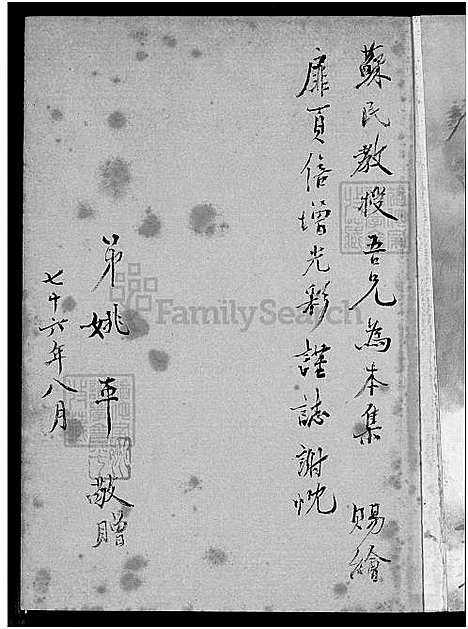 蘇民教授吾兄為本集 賜繪
扉頁倍增光彩 謹誌謝忱
弟姚 敬贈
七十六年八月
FamilySearch